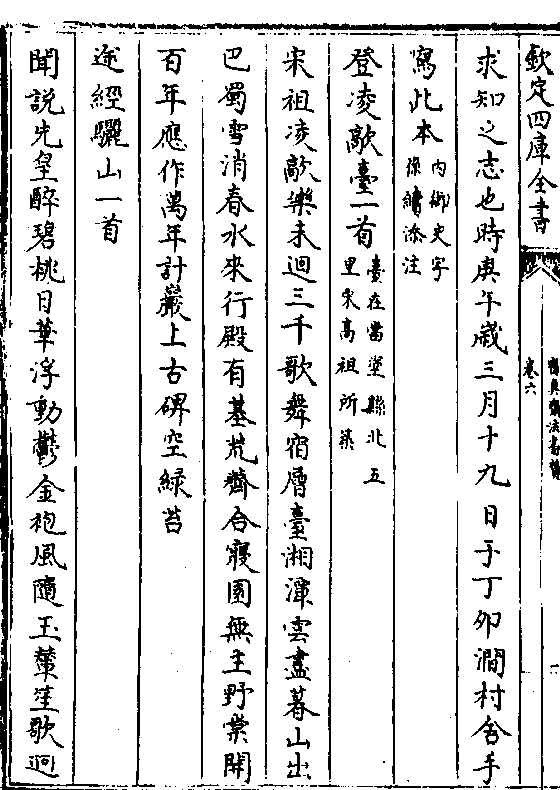 欽定四庫全書
卷六
求知之志也時庚午歲三月十九日于丁卯澗村舍手
寫此本内御史字係續添注
登凌歊臺一首臺在當塗縣北五里宋高祖所築
宋祖凌歊樂未迴三千歌舞宿層臺湘潭雲盡暮山出
巴蜀雪消春水來行殿有基荒薺合寢園無主野棠開
百年應作萬年計巖上古碑空綠苔
途經驪山一首
聞說先皇醉碧桃日華浮動鬱金袍風隨玉輦笙歌迥